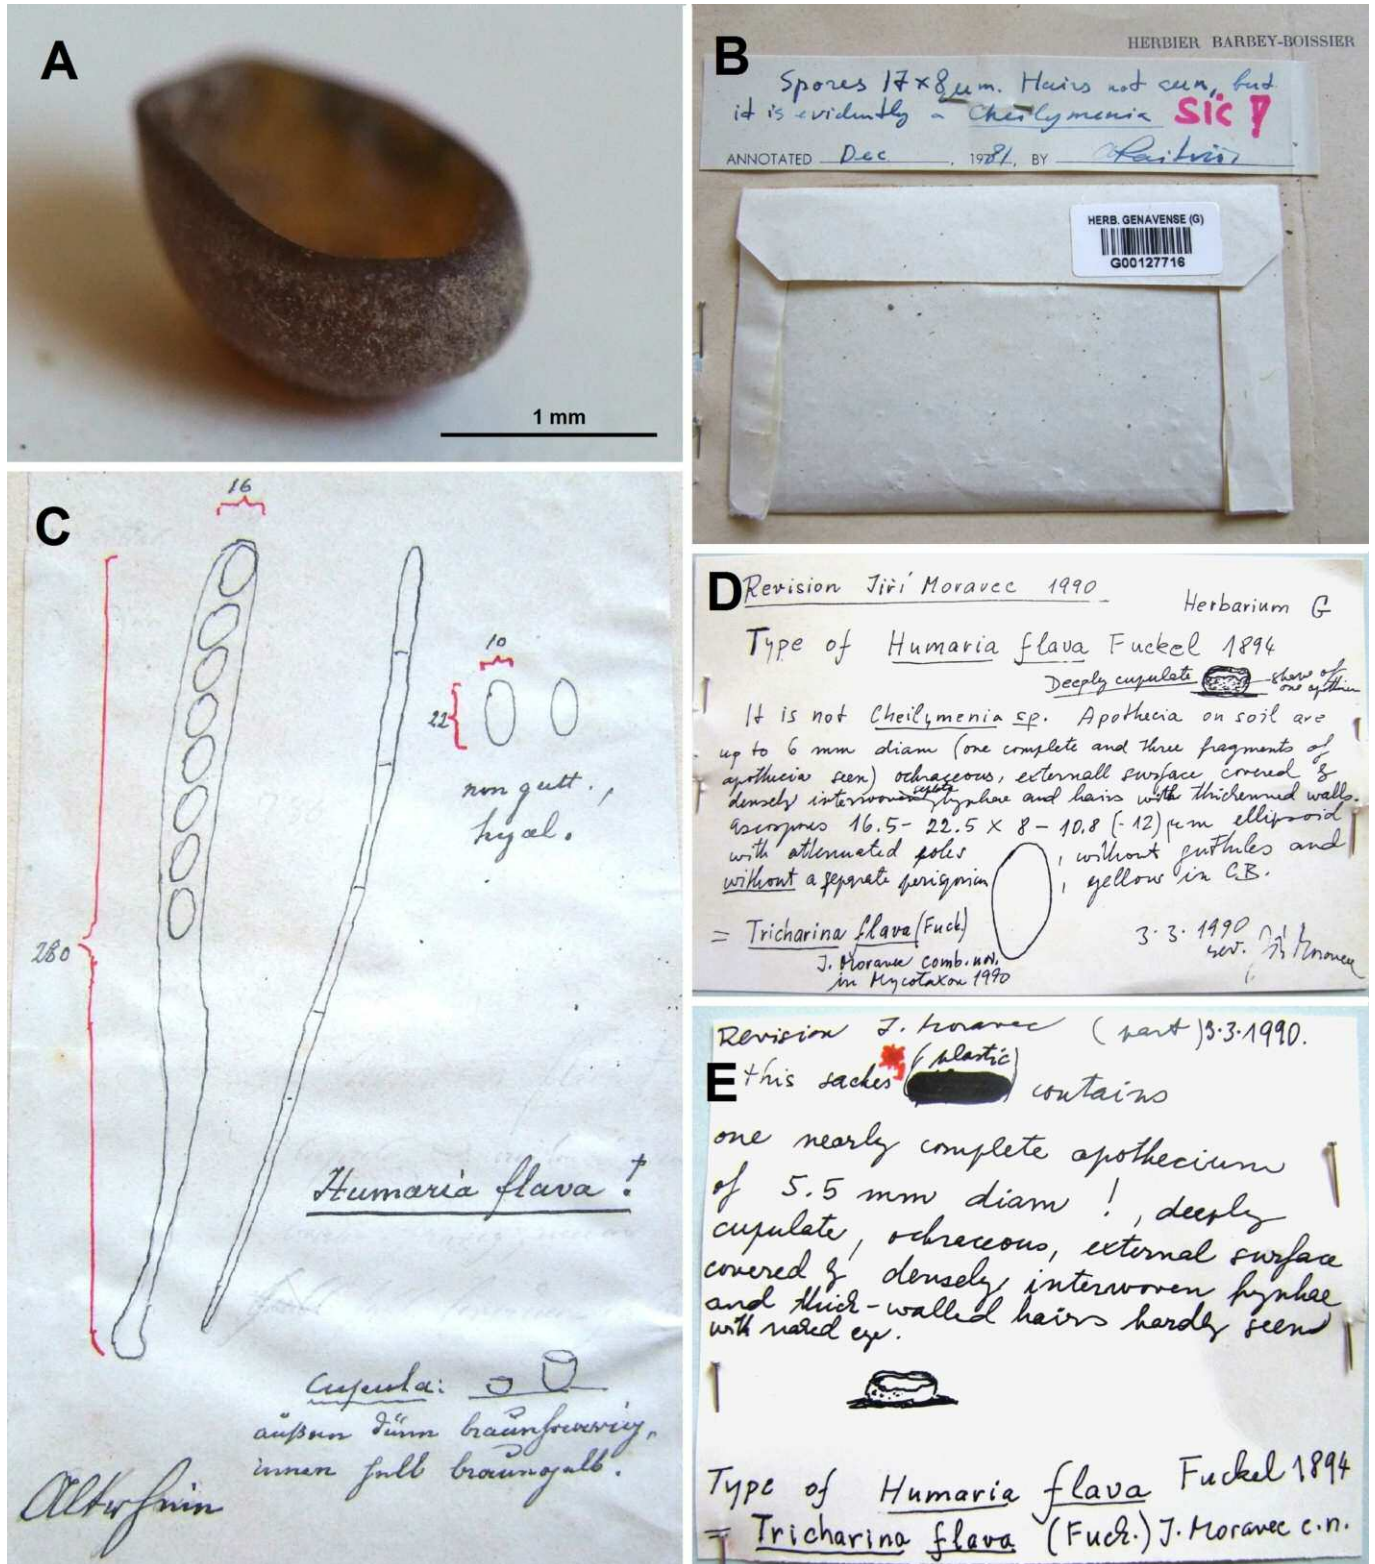 A
1 mm
B
HERBIER BARBEY-BOISSIER
Spores 17 × 8 µm. Hairs not seen, but
it is evidently a Cheilymenia sic !
ANNOTATED Dec , 1981, BY Raitviir
HERB. GENAVENSE (G)
G00127716
C
16
280
10
22
non gutt.,
hyal.
Humaria flava !
Cupula:
außen dünn
innen hell braungelb.
Altrhein
D
Revision Jiří Moravec 1990
Herbarium G
Type of Humaria flava Fuckel 1894
Deeply cupulate
shape of
one apothecium
It is not Cheilymenia sp. Apothecia on soil are
up to 6 mm diam (one complete and three fragments of
apothecia seen) ochraceous, externall surface covered by
densely interwoven hyphae and hairs with thickenned walls.
Ascospores 16.5 - 22.5 × 8 - 10.8 (-12) µm ellipsoid
with attenuated poles , without guttules and
without a separate perisporium , yellow in C.B.
= Tricharina flava (Fuck.)
J. Moravec comb. nov.
in Mycotaxon 1990
3.3.1990
rev. Jiří Moravec
E
Revision J. Moravec (part) 3.3.1990.
(plastic)
this sachet contains
one nearly complete apothecium
of 5.5 mm diam ! , deeply
cupulate, ochraceous, external surface
covered by densely interwoven hyphae
and thick-walled hairs hardly seen
with naked eye.
Type of Humaria flava Fuckel 1894
= Tricharina flava (Fuck.) J. Moravec c.n.